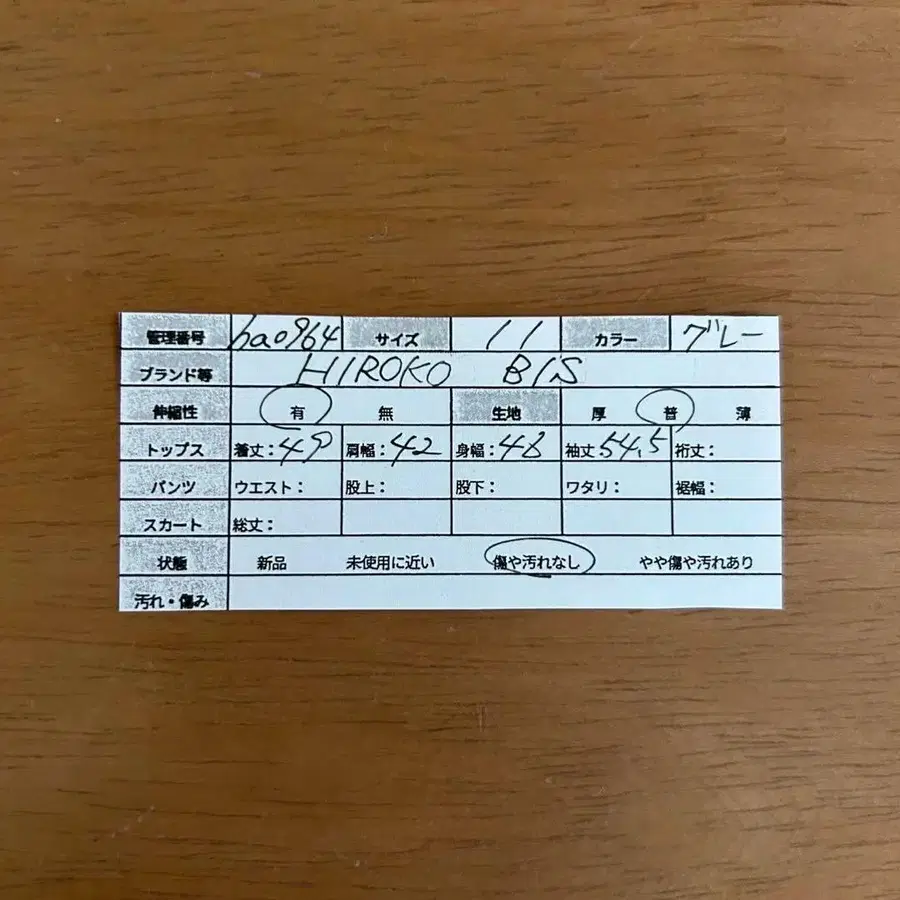 管理番号 ha0964 サイズ 11 カラー グレー
ブランド等 HIROKO BIS
伸縮性 有 無 生地 厚 普 薄
トップス 着丈:49 肩幅:42 身幅:48 袖丈 54.5 裄丈:
パンツ ウエスト: 股上: 股下: ワタリ: 裾幅:
スカート 総丈:
状態 新品 未使用に近い 傷や汚れなし やや傷や汚れあり
汚れ・傷み